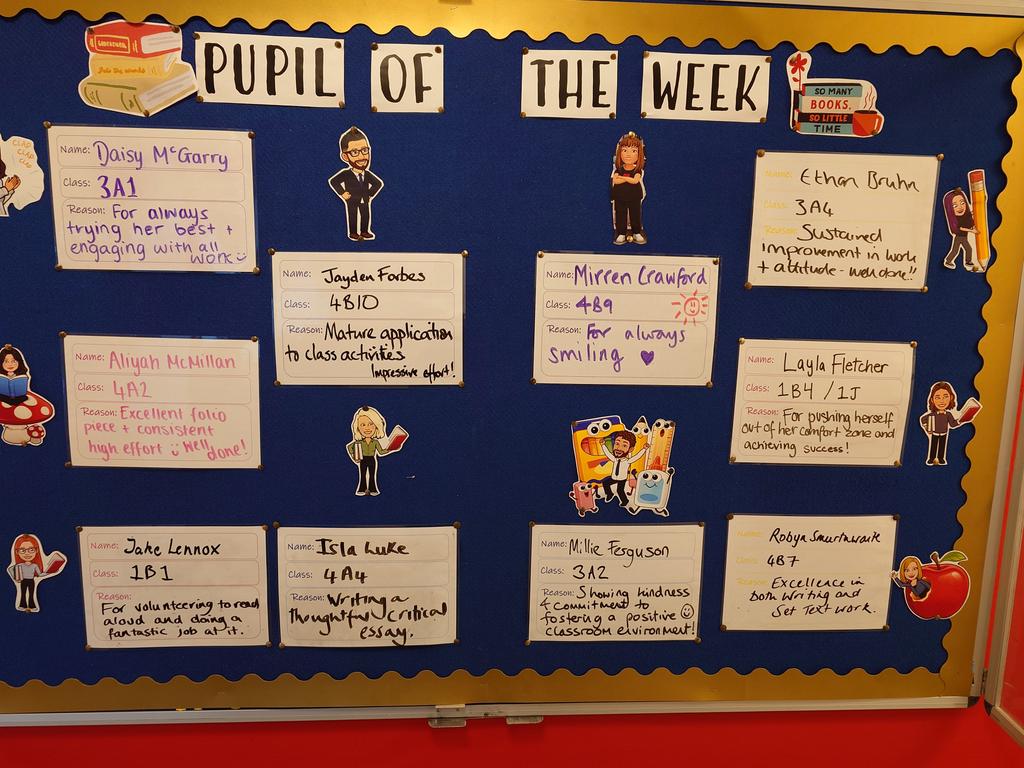 PUPIL OF THE WEEK
SO MANY
BOOKS,
SO LITTLE
TIME
CLAP
CLAP
CLAP
Name: Daisy McGarry
Class: 3A1
Reason: For always
trying her best +
engaging with all
work
Name: Jayden Forbes
Class: 4B10
Reason: Mature application
to class activities
Impressive effort!
Name: Mirren Crawford
Class: 4B9
Reason: For always
smiling
Name: Ethan Bruhn
Class: 3A4
Reason: Sustained
improvement in work
+ attitude - well done!!
Name: Aliyah McMillan
Class: 4A2
Reason: Excellent folio
piece + consistent
high effort Well done!
Name: Layla Fletcher
Class: 1B4 / 1J
Reason: For pushing herself
out of her comfort zone and
achieving success!
Name: Jake Lennox
Class: 1B1
Reason:
For volunteering to read
aloud and doing a
fantastic job at it.
Name: Isla Luke
Class: 4A4
Reason: Writing a
thoughtful critical
essay.
Name: Millie Ferguson
Class: 3A2
Reason: Showing kindness
& commitment to
fostering a positive
classroom environment!
Name: Robyn Smurthwaite
Class: 4B7
Reason: Excellence in
both writing and
Set Text work.